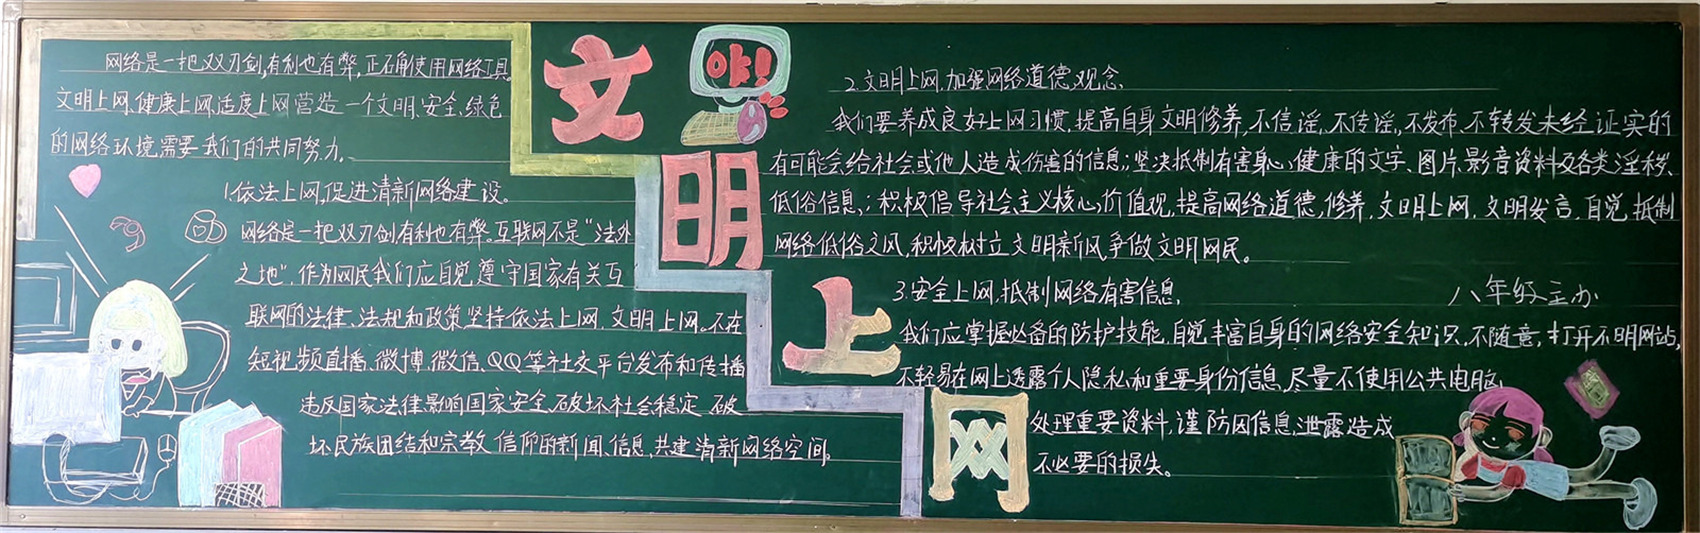 网络是一把双刃剑,有利也有弊,正确使用网络工具。
文明上网、健康上网、适度上网营造一个文明、安全、绿色
的网络环境需要我们的共同努力。
1.依法上网,促进清新网络建设。
网络是一把双刃剑有利也有弊。互联网不是“法外
之地”,作为网民我们应自觉遵守国家有关互
联网的法律、法规和政策坚持依法上网,文明上网。不在
短视频直播、微博、微信、QQ等社交平台发布和传播
违反国家法律影响国家安全、破坏社会稳定、破
坏民族团结和宗教信仰的新闻、信息,共建清新网络空间。
文
明
上
网
哎!
2.文明上网,加强网络道德观念、
我们要养成良好上网习惯,提高自身文明修养,不信谣,不传谣,不发布、不转发未经证实的
有可能会给社会或他人造成伤害的信息;坚决抵制有害身心健康的文字、图片、影音资料及各类淫秽、
低俗信息;积极倡导社会主义核心价值观,提高网络道德修养,文明上网,文明发言,自觉抵制
网络低俗之风,积极树立文明新风,争做文明网民。
3.安全上网,抵制网络有害信息,
八年级主办
我们应掌握必备的防护技能,自觉丰富自身的网络安全知识,不随意打开不明网站,
不轻易在网上透露个人隐私和重要身份信息,尽量不使用公共电脑
处理重要资料,谨防因信息泄露造成
不必要的损失。